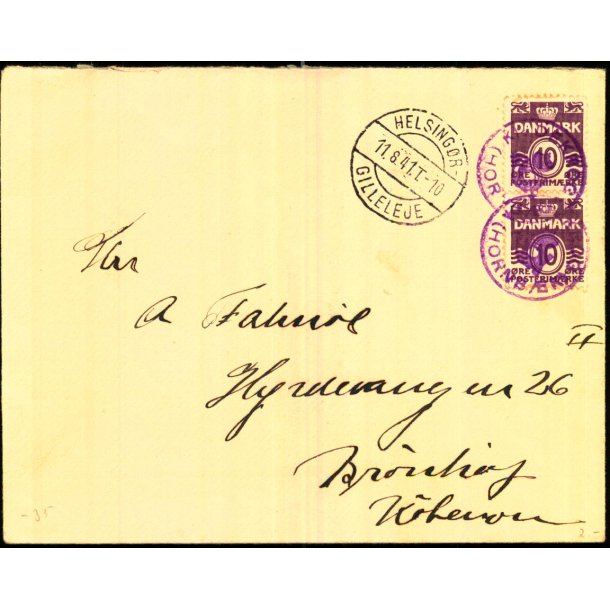 HELSINGØR-
11.8.41.T.-10
GILLELEJE
DANMARK
10
ØRE ØRE
POSTFRIMÆRKE
DANMARK
10
ØRE ØRE
POSTFRIMÆRKE
(HORNBÆK
Hrr
A
II
Hyrdevangen 26
Brönshöj